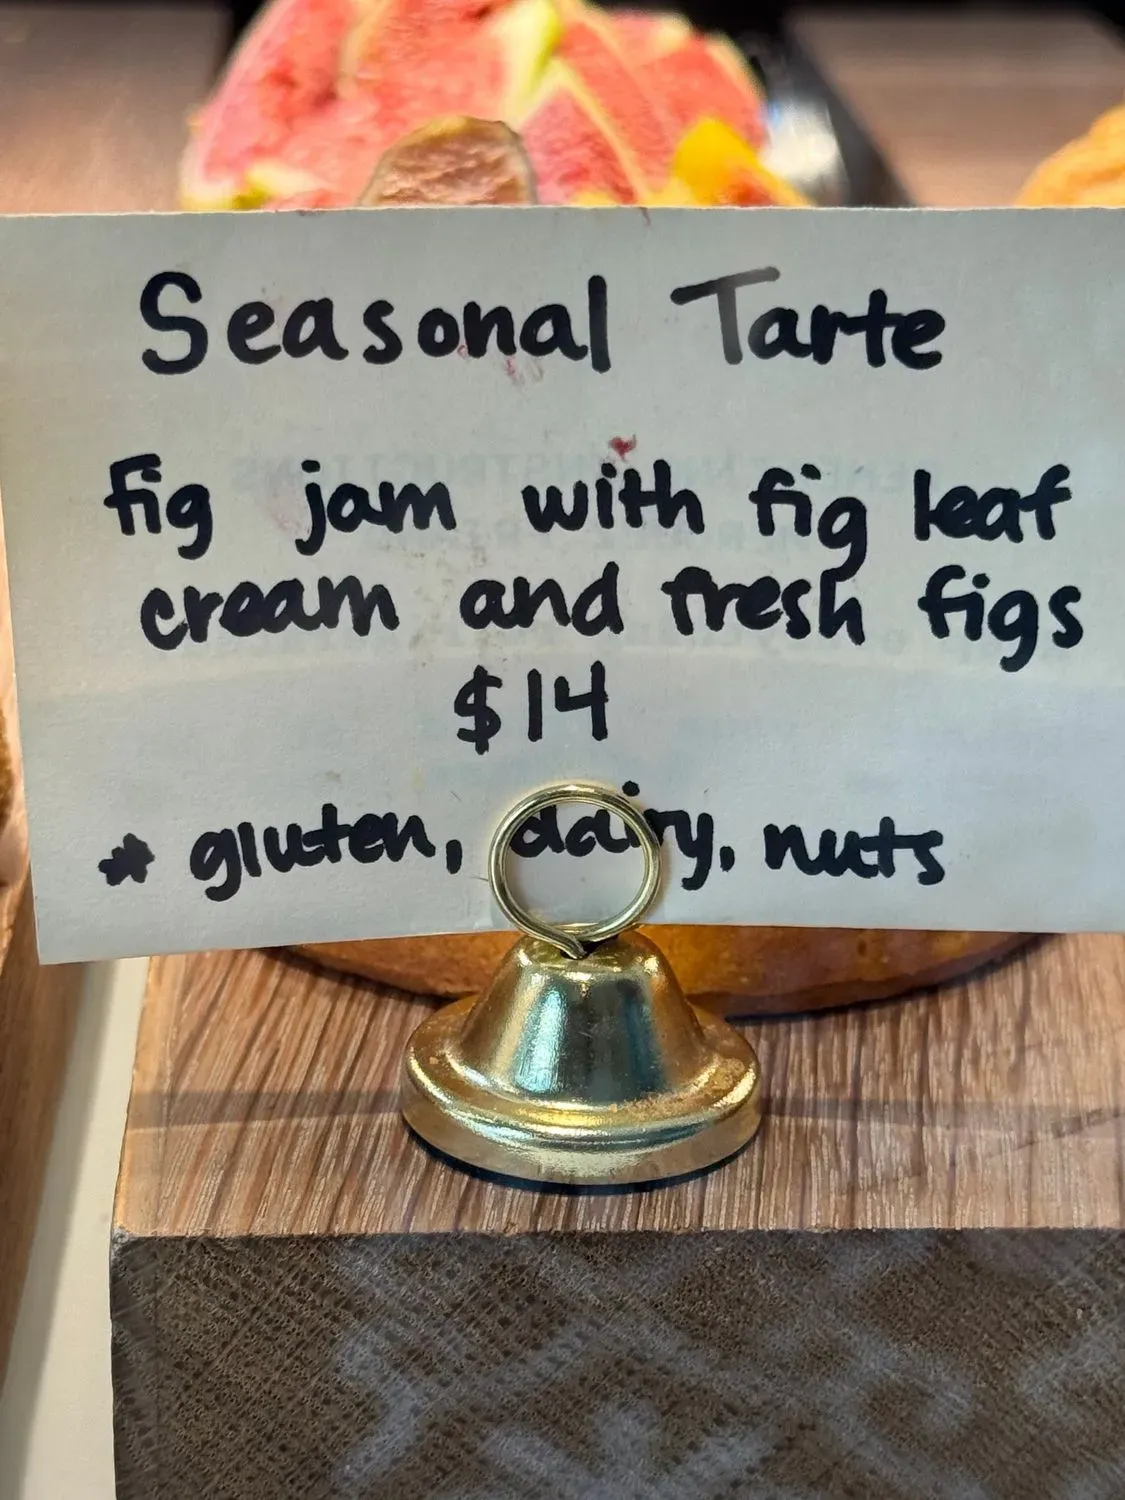 Seasonal Tarte
fig jam with fig leaf
cream and fresh figs
$14
* gluten, dairy, nuts